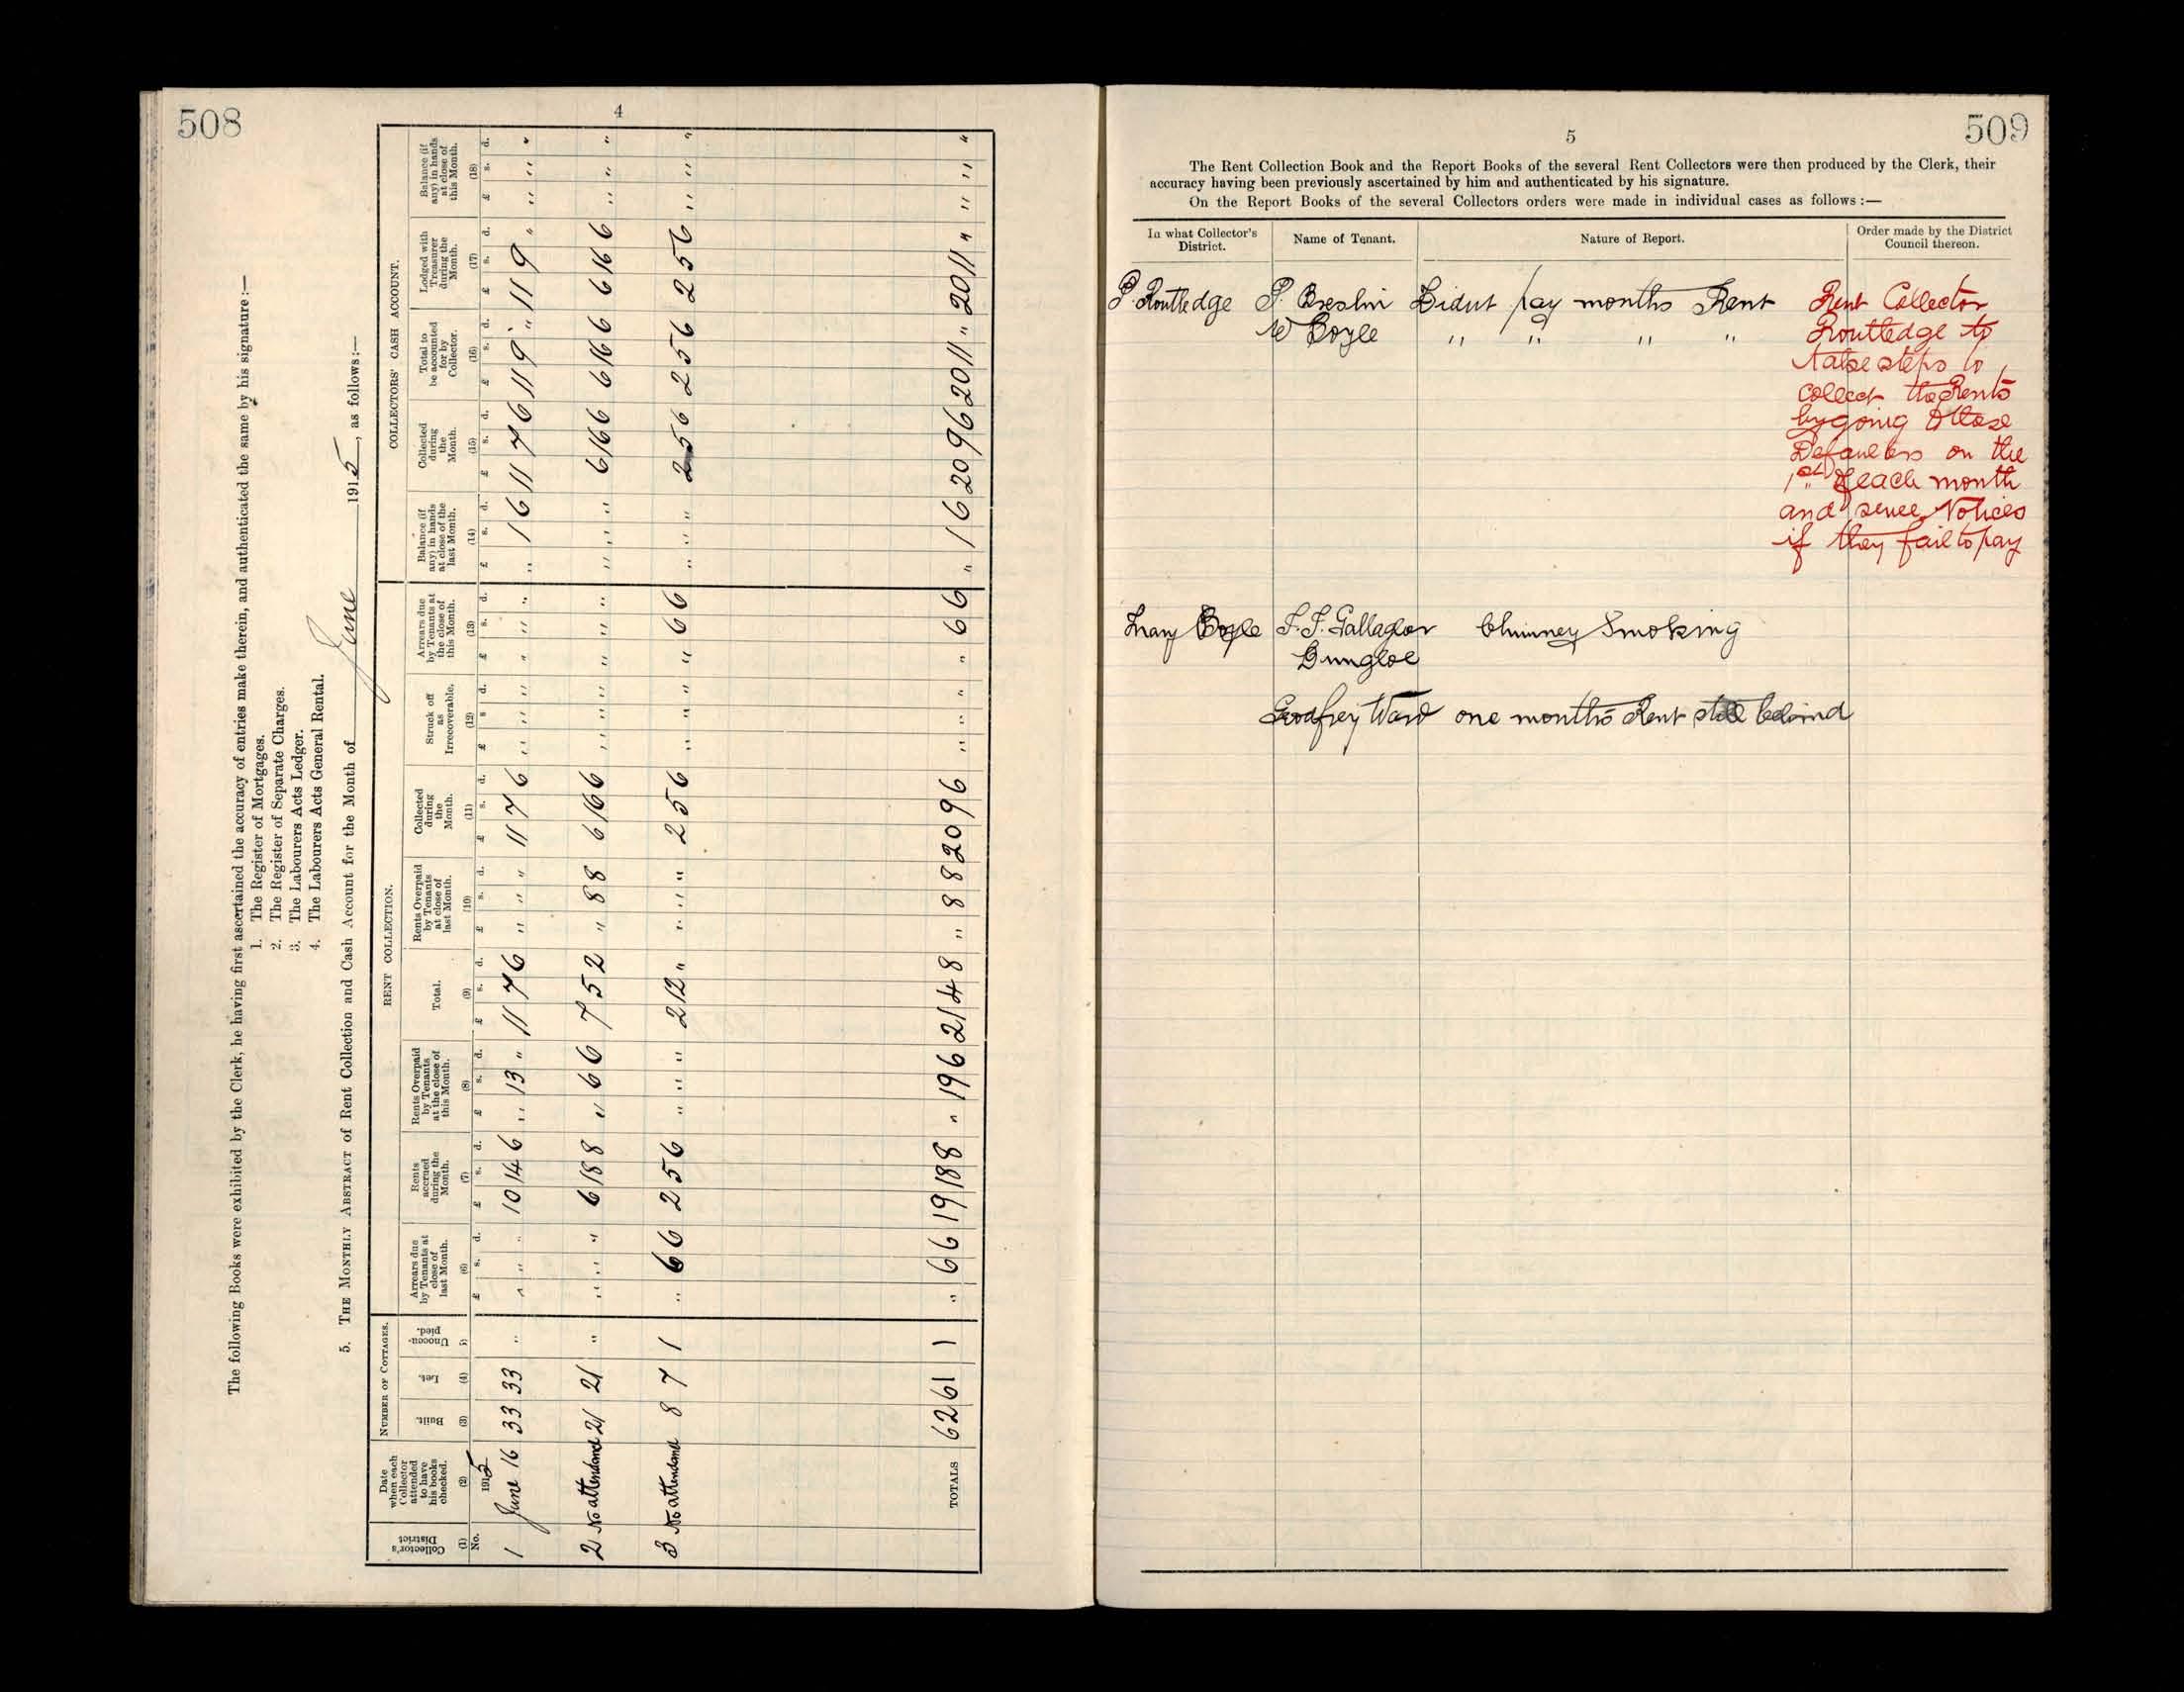 508
4
The following Books were exhibited by the Clerk, he having first ascertained the accuracy of entries make therein, and authenticated the same by his signature :—
1. The Register of Mortgages.
2. The Register of Separate Charges.
3. The Labourers Acts Ledger.
4. The Labourers Acts General Rental.
5. THE MONTHLY ABSTRACT of Rent Collection and Cash Account for the Month of June 1915, as follows :—
NUMBER OF COTTAGES. RENT COLLECTION. COLLECTORS' CASH ACCOUNT.
Collector's District
Date when each Collector attended to have his books checked.
Built.
Let.
Unoccupied.
Arrears due by Tenants at close of last Month.
Rents accrued during the Month.
Rents Overpaid by Tenants at the close of this Month.
Total.
Rents Overpaid by Tenants at close of last Month.
Collected during the Month.
Struck off as Irrecoverable.
Arrears due by Tenants at the close of this Month.
Balance (if any) in hands at close of the last Month.
Collected during the Month.
Total to be accounted for by Collector.
Lodged with Treasurer during the Month.
Balance (if any) in hands at close of this Month.
(1) (2) (3) (4) (5) (6) (7) (8) (9) (10) (11) (12) (13) (14) (15) (16) (17) (18)
No. 1915 £ s. d. £ s. d. £ s. d. £ s. d. £ s. d. £ s. d. £ s. d. £ s. d. £ s. d. £ s. d. £ s. d. £ s. d. £ s. d.
1 June 16 33 33 " " " " 10 14 6 " 13 " 11 7 6 " " " 11 7 6 " " " " " " " 1 6 11 7 6 11 9 " 11 9 " " " "
2 No attendance 21 21 " " " " 6 18 8 " 6 6 7 5 2 " 8 8 6 16 6 " " " " " " " " " 6 16 6 6 16 6 6 16 6 " " "
3 No attendance 8 7 1 " 6 6 2 5 6 " " " 2 12 " " " " 2 5 6 " " " " 6 6 " " " 2 5 6 2 5 6 2 5 6 " " "
TOTALS 62 61 1 " 6 6 19 18 8 " 19 6 21 4 8 " 8 8 20 9 6 " " " " 6 6 " 1 6 20 9 6 20 11 " 20 11 " " " "
509
5
The Rent Collection Book and the Report Books of the several Rent Collectors were then produced by the Clerk, their
accuracy having been previously ascertained by him and authenticated by his signature.
On the Report Books of the several Collectors orders were made in individual cases as follows :—
In what Collector's District.
Name of Tenant.
Nature of Report.
Order made by the District Council thereon.
P. Routledge P. Breslin Didnt pay months Rent
W Boyle " " " "
Rent Collector
Routledge to
take steps to
collect the Rents
by going to these
Defaulters on the
1st of each month
and serve Notices
if they fail to pay
Many Boyle J. F. Gallagher Chimney Smoking
Dungloe
Godfrey Ward one months Rent still behind